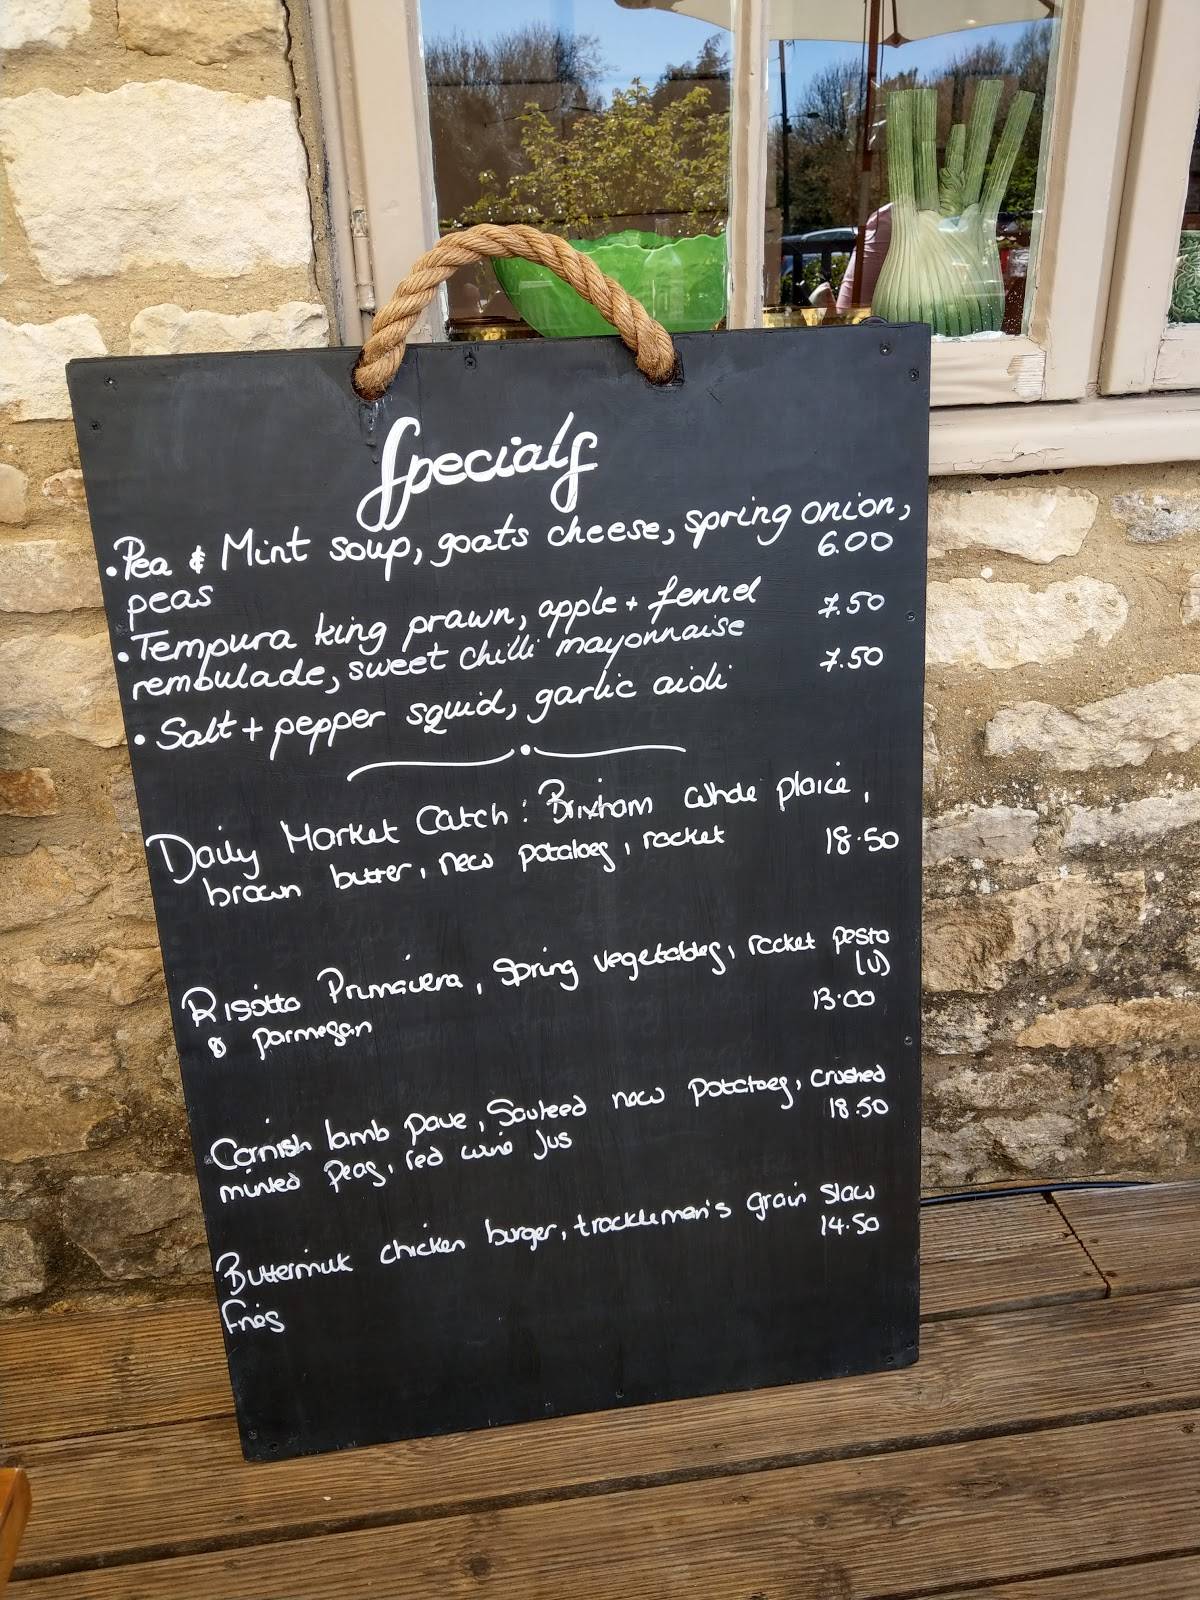 Specials
• Pea & Mint soup, goats cheese, spring onion,
peas 6.00
• Tempura king prawn, apple + fennel 7.50
rembulade, sweet chilli mayonnaise
• Salt + pepper squid, garlic aioli 7.50
Daily Market Catch: Brixham whole plaice,
brown butter, new potatoes, rocket 18.50
Risotto Primavera, Spring vegetables, rocket pesto
& parmesan (v) 13.00
Cornish lamb pave, Sauteed new potatoes, crushed
minted peas, red wine jus 18.50
Buttermilk chicken burger, tracklemen's grain slaw
fries 14.50